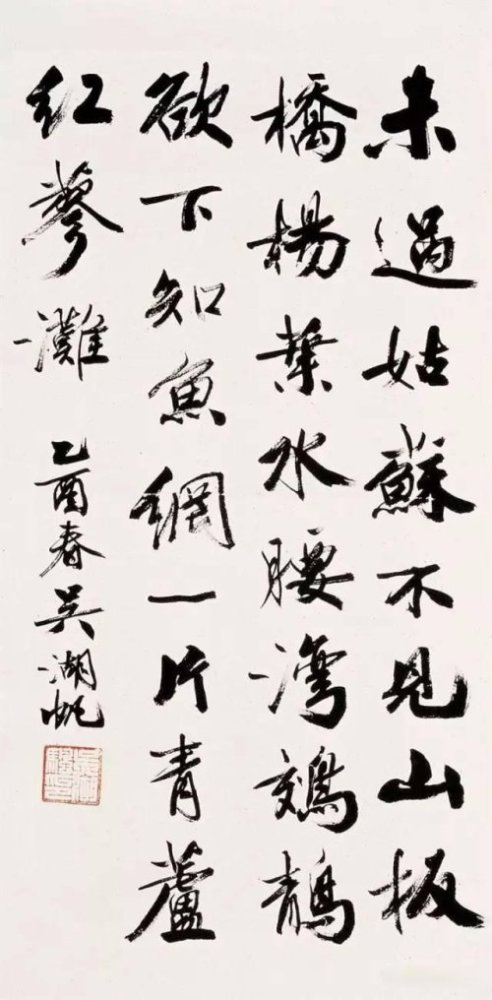 未過姑蘇不見山板
橋楊葉水腰灣鵁鶄
欲下知魚網一片青蘆
紅蓼灘
乙酉春吳湖帆